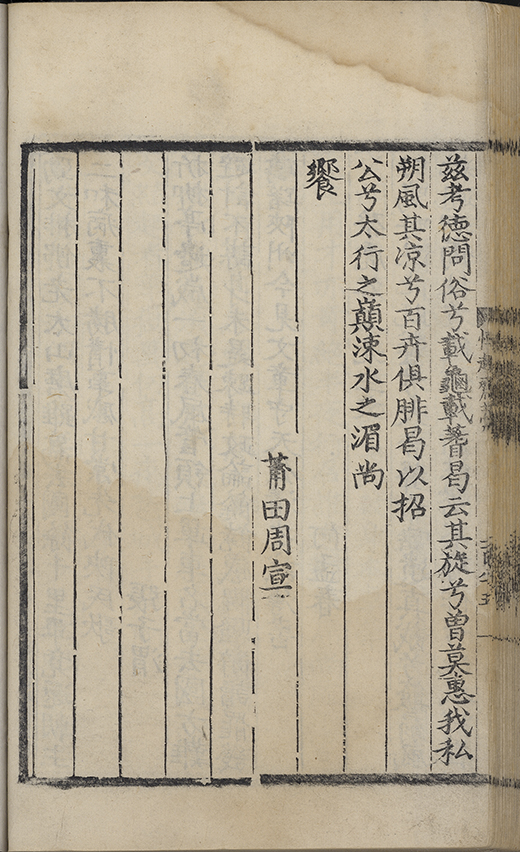 茲考德問俗兮載龜載蓍曷云其旋兮曽莫惠我私
朔風其凉兮百卉俱腓曷以招
公兮太行之巔涑水之湄尚
饗
莆田周宣